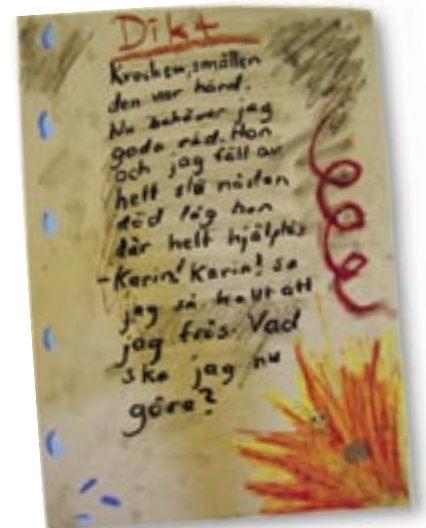 Dikt
Krocken, smällen
den var hård.
Nu behöver jag
goda råd. Hon
och jag föll av
helt slö nästan
död låg hon
där helt hjälplös
- Karin! Karin! sa
jag så kallt att
jag frös. Vad
ska jag nu
göra?